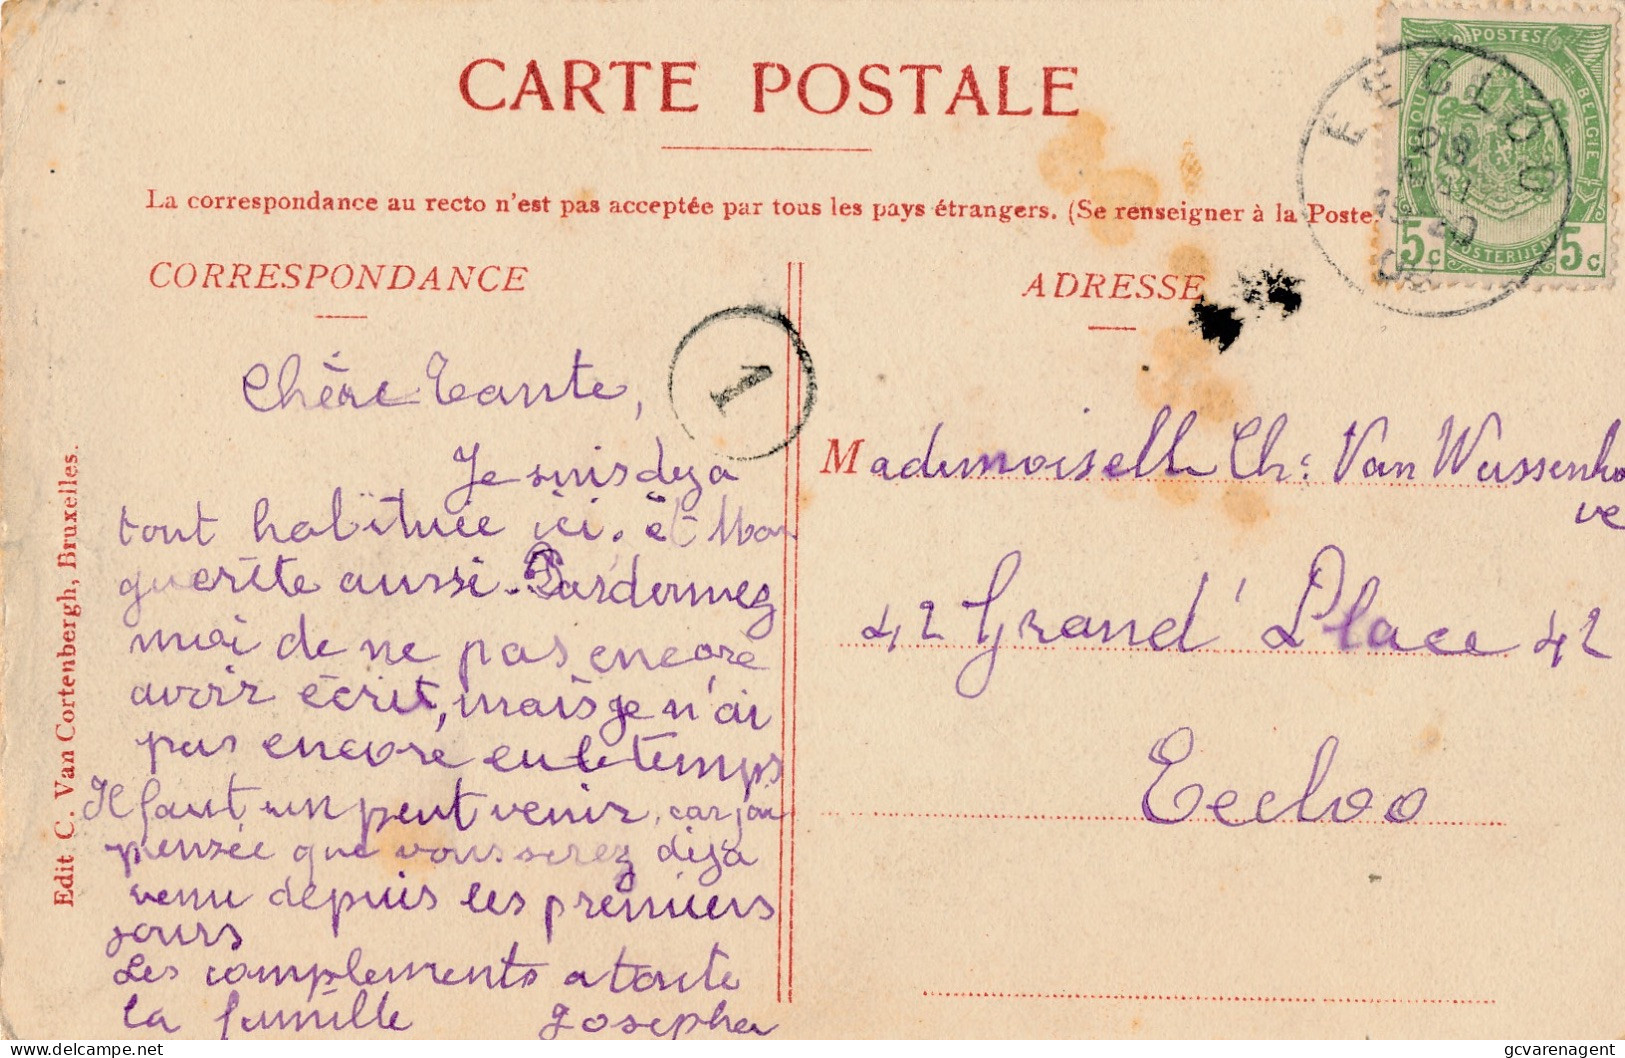 CARTE POSTALE
La correspondance au recto n'est pas acceptée par tous les pays étrangers. (Se renseigner à la Poste.
CORRESPONDANCE
Chère Tante,
Je suis deja
tout habituée ici. et Mar
guerite aussi. Pardonnez
moi de ne pas encore
avoir écrit, mais je n'ai
pas encore eu le temps
Il faut un peut venir, car j'ai
pensée que vous serez déja
venu depuis les premiers
jours
Les complements a toute
la famille Josepha
1
Edit C. Van Cortenbergh, Bruxelles.
ADRESSE
Mademoiselle Che Van Wassenho
ve
42 Grand' Place 42
Eecloo
POSTES
BELGIQUE BELGIE
5c 5c
POSTERIJEN
EECLOO
gcvarenagent
delcampe.net